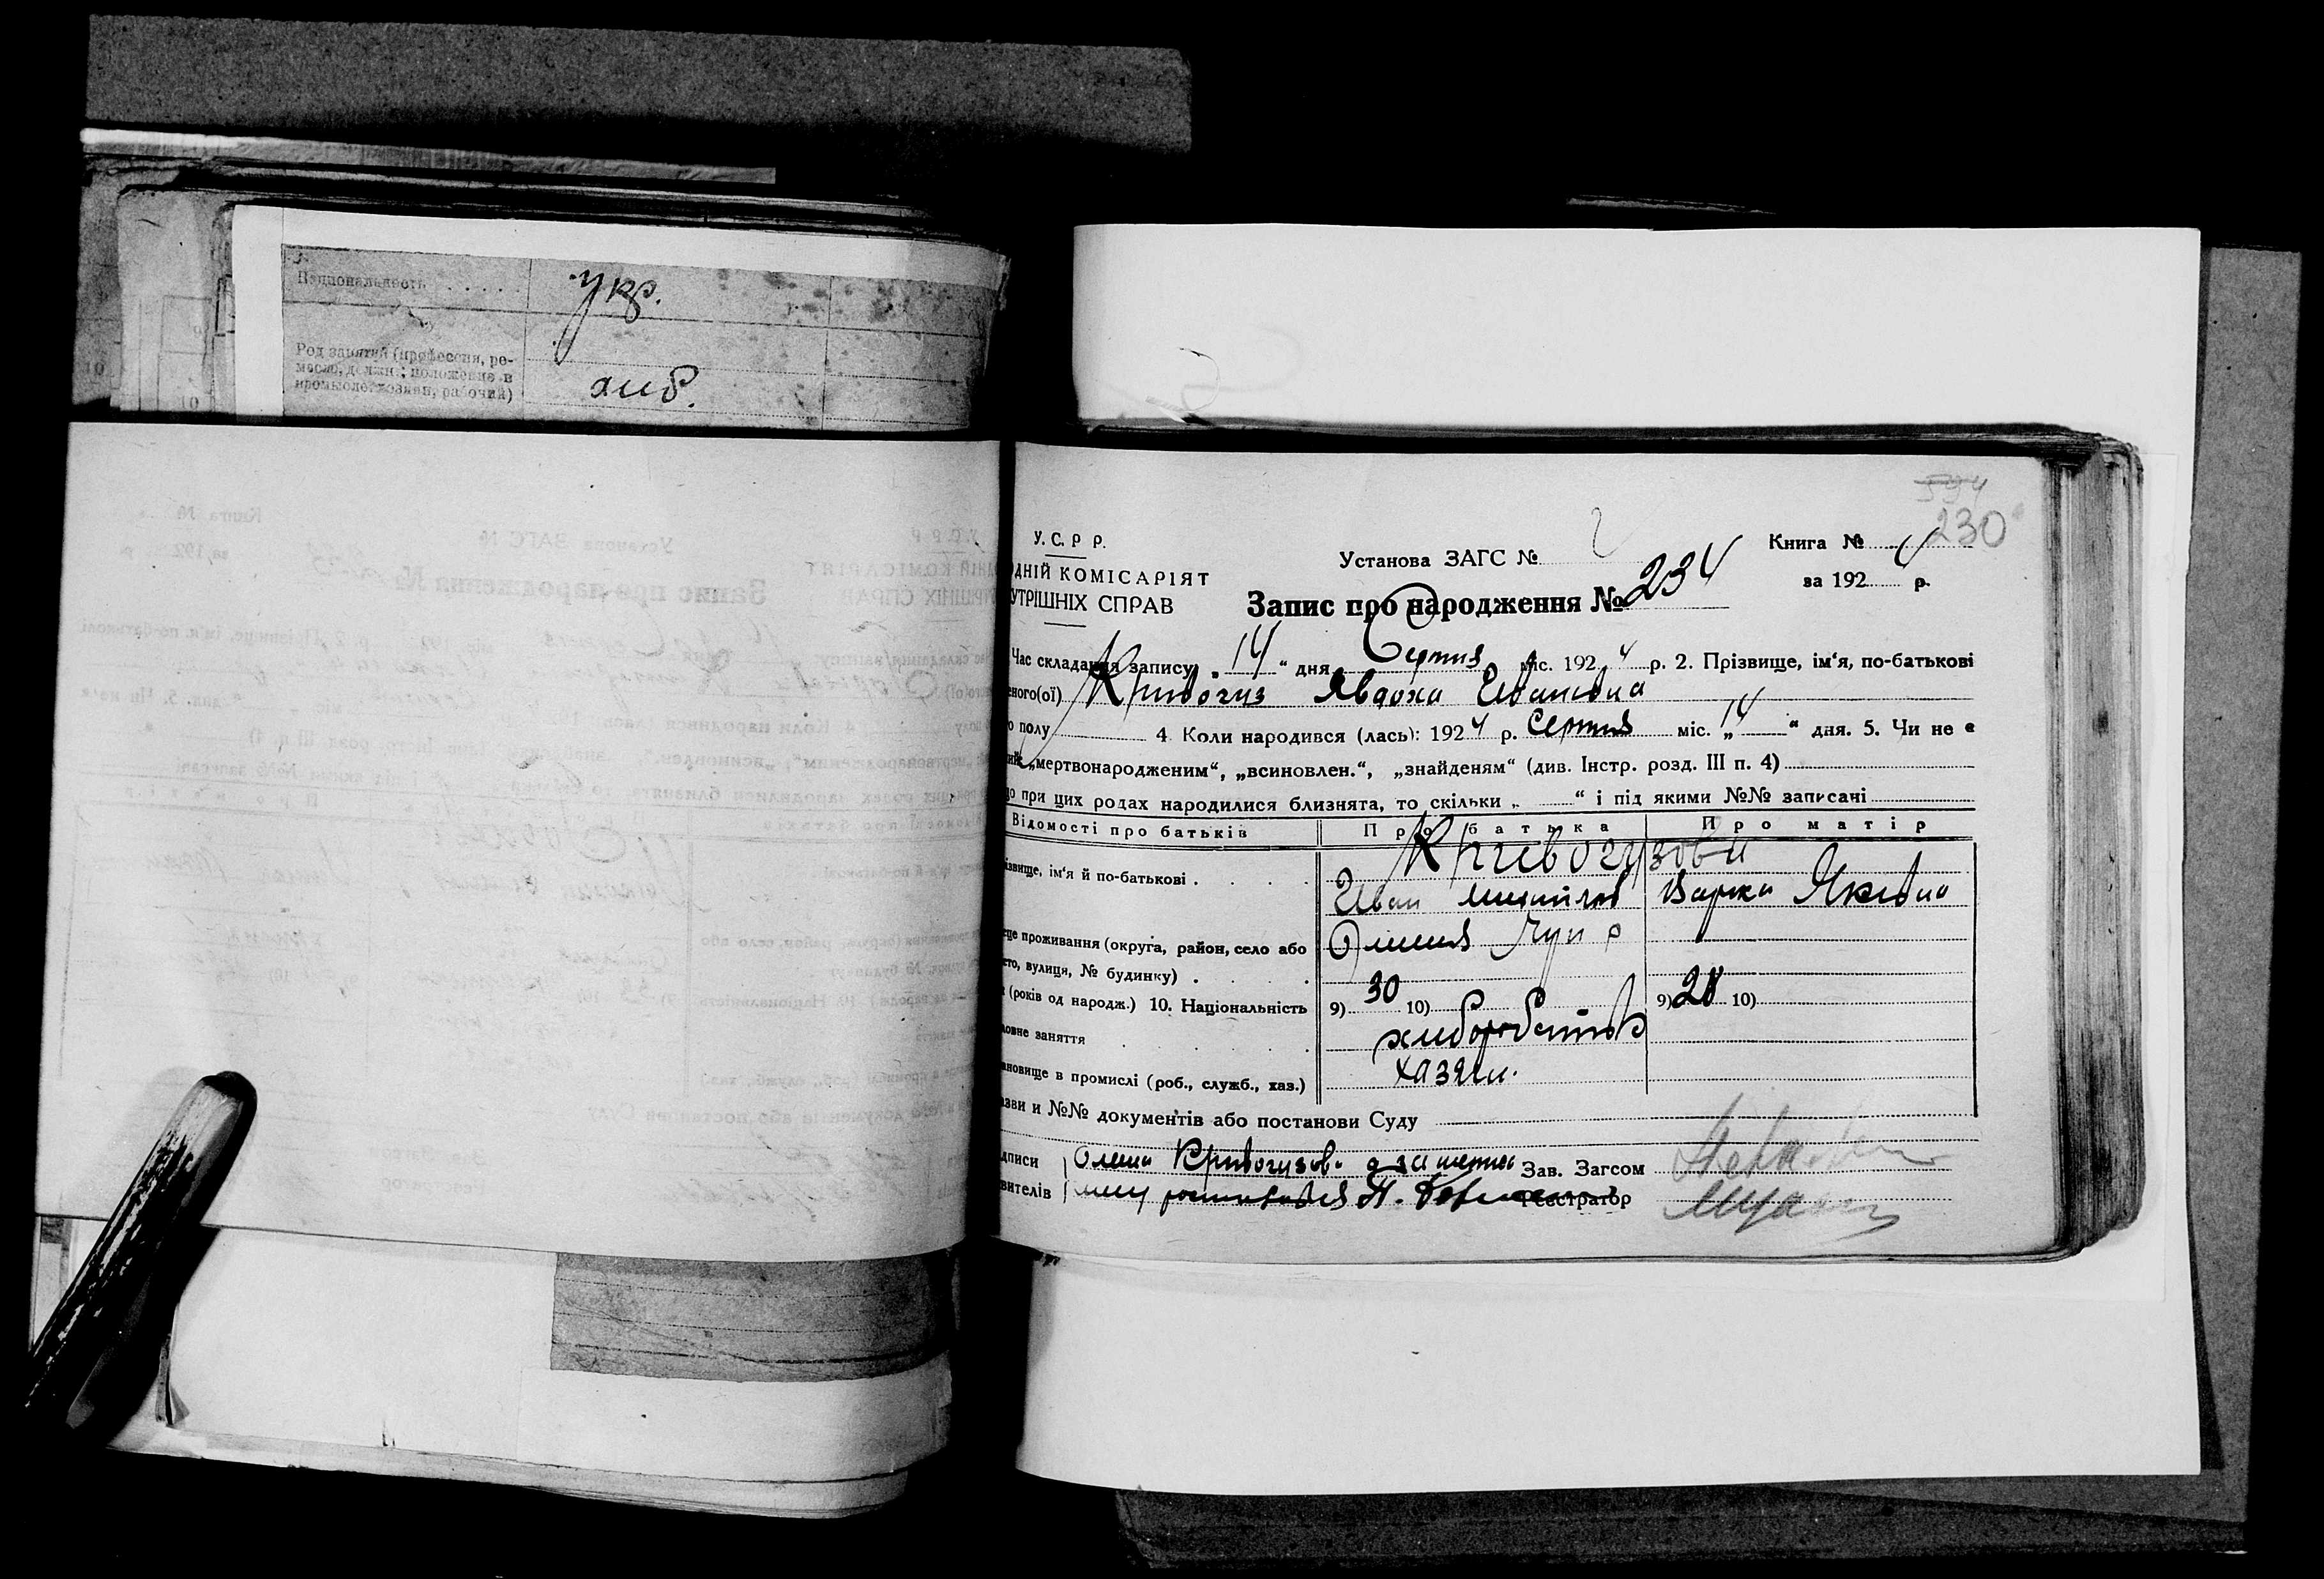 Национальность . . . . . укр.
Род занятий (профессия, ре-
месло, должн.; положение в
промысле: хозяин, рабочий)
хліб.
10
10
594
230
У.С.Р.Р.
ДНІЙ КОМІСАРІЯТ
УТРІШНІХ СПРАВ
Установа ЗАГС №
Книга № 4
за 192 р.
Запис про народження № 234
Час складання запису „ 14 “ дня Серпня міс. 192 4 р. 2. Прізвище, ім‘я, по-батькові
еного(ої) Кривогуз Явдоха Ивановна
о полу 4. Коли народився (лась): 192 4 р. Серпня міс. „ 14 “ дня. 5. Чи не є
„мертвонародженим“, „всиновлен.“, „знайденям“ (див. Інстр. розд. III п. 4)
що при цих родах народилися близнята, то скільки „ “ і під якими №№ записані
Відомості про батьків Про батька Про матір
Кривогузови
ізвище, ім‘я й по-батькові . . . . Иван Михайлов Варка Яківна
це проживання (округа, район, село або
то, вулиця, № будинку) . . . .
(років од народж.) 10. Національність 9) 30 10) 9) 28 10)
ловне заняття . . . . хліборобство
ановище в промислі (роб., служб., хаз.) хазяин.
зви и №№ документів або постанови Суду
дписи Кривогузова Зав. Загсом
вителів Реєстратор